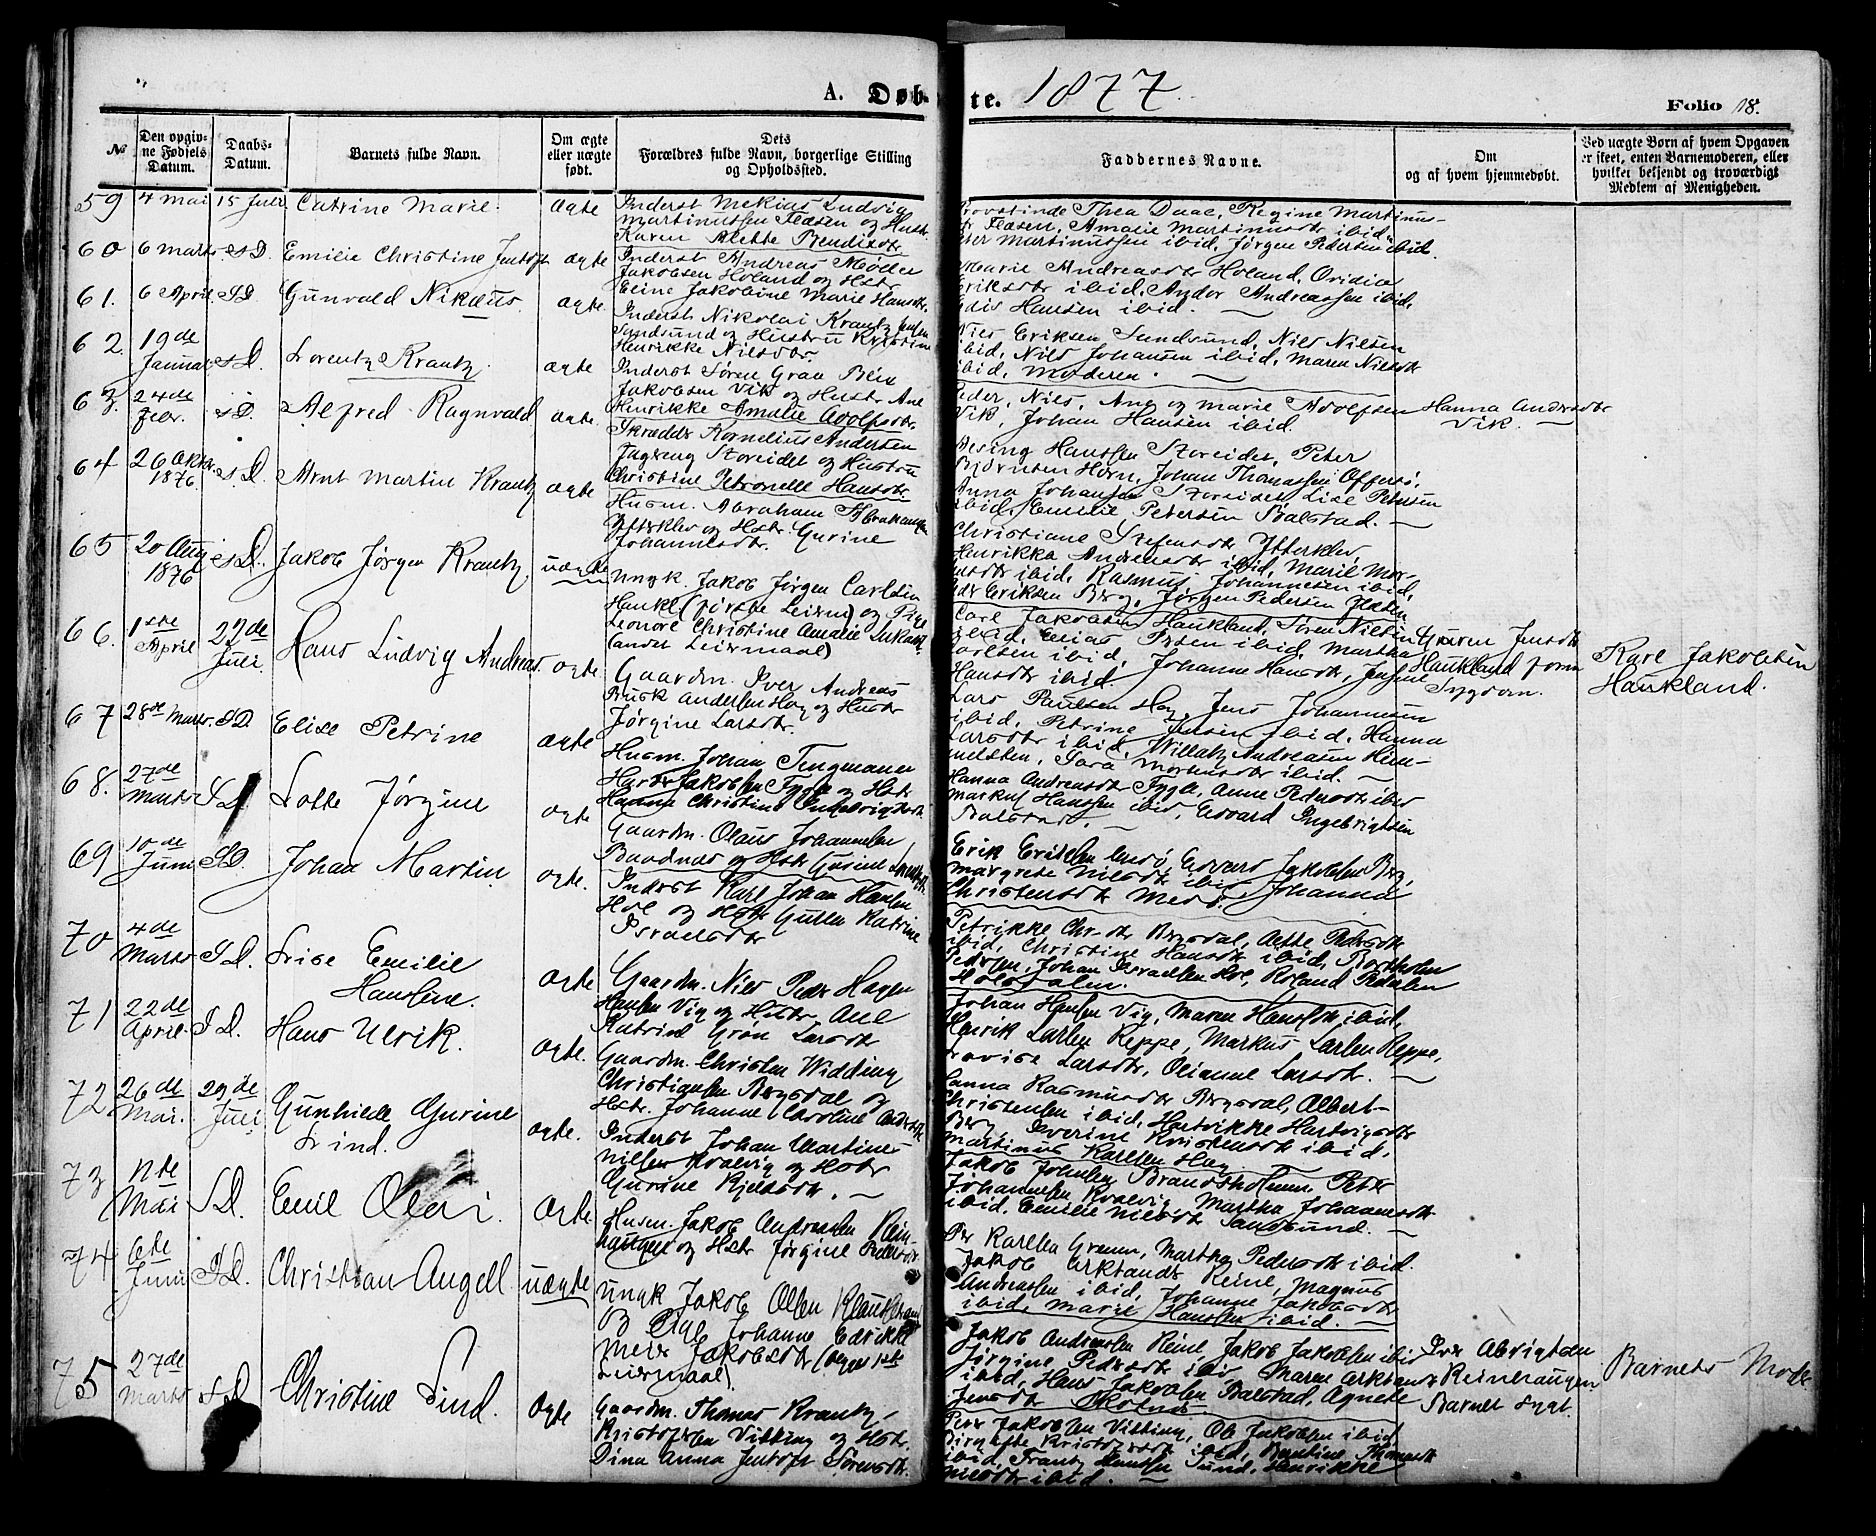 A. Døb- te. 1877 Folio 18.
No
Den opgiv-
ne Fødsels
Datum.
Daabs-
Datum.
Barnets fulde Navn.
Om ægte
eller uægte
født.
Dets
Forældres fulde Navn, borgerlige Stilling
og Opholdssted.
Faddernes Navne.
Om
og af hvem hjemmedøbt.
Ved uægte Børn af hvem Opgaven
er skeet, enten Barnemoderen, eller
hvilket bekjendt og troværdigt
Medlem af Menigheden.
59 4 Mai 15 Juli Catrine Marie. ægte
Inderst Mekias Ludvig
Martinussen Flæsen og Hust.
Karen Alette Bendixdtr
Provstinde Thea Daae, Regine Martinus-
Flæsen, Amalie Martinusdtr ibid
Peter Martinussen ibid, Jørgen Pedersen ibid.
60 6 Marts S.D. Emilie Christine Jentoft ægte
Inderst Andreas Møller
Jakobsen Holand og Hstr
Eline Jakobine Marie Hansdtr.
Marie Andreasdtr Holand, Ovidia
Eriksdtr ibid, Andor Andreassen ibid,
Hansen ibid.
61. 6 April S.D. Gunvald Nikæus. ægte
Inderst Nikolai Krantz Jensen
Sandsund og Hustru Kristine
Henrikke Nilsdtr.
Nils Eriksen Sandsund, Nils Nilsen
ibid, Nils Johansen ibid, Maren Nilsdtr
ibid, Moderen.
62. 19de
Januar S.D. Lorentz Krantz. ægte
Inderst Søren Grau Beix
Jakobsen Vik og Hustr Ane
Henrikke Amalie Adolfsdtr.
Peder, Nils, Ane og Marie Adolfsen
Vik, Johan Hansen ibid.
Hanna Andersdtr
Vik.
63. 24de
Febr. S.D. Alfred Ragnvald ægte
Skrædder Kornelius Andersen
Storeidet og Hustru
Christine Petronelle Hansdtr
Hansen Storeidet, Peter
Bjørnsen Horn, Johan Thomassen Offersø,
Anna Johansen Storeidet, Lise Petersen
ibid, Emilie Petersen Balstad.
64 26 Oktbr.
1876. S.D. Arnt Martin Krantz ægte
Husm. Abraham Abrahamsen
Ytterklev og Hstr. Gurine
Johannesdtr.
Christiane Stefensdtr Ytterklev
Henrikka Andreasdtr ibid, Marie Mor-
ibid, Rasmus Johannesen ibid,
Eriksen Berg, Jørgen Pedersen Flæsen
65 20 Aug
1876 S.D. Jakob Jørgen Krantz uægte
Ungk. Jakob Jørgen Carlsen
Haukl (første Leierm) og Pige
Leonore Christine Amalie
(andet Leiermaal)
Carl Jakobsen Haukland, Søren Nilsen
ibid, Elias Olsen ibid, Martha
Carlsen ibid, Johanne Hansdtr, Jensine
Hansdtr ibid.
Guren Jensdtr
Haukland form
Sygdom.
Karl Jakobsen
Haukland.
66. 1ste
April 22de
Juli Hans Ludvig Andreas. ægte
Gaardm. Iver Andreas
Busk Andersen Hag og Hustr
Jørgine Larsdtr.
Lars Paulsen Hag, Jens Johannesen
ibid, Petrine Jensen ibid, Hanna
Larsdtr ibid, Willatz Andreasen Hem-
Sara Mortensdtr ibid.
67 28de Marts. S.D Elise Petrine ægte
Husm. Johan Tengmann
Jakobsen Fygle og Hstr
Hanna Christine Ingebrigtsdtr
Hanna Andreasdtr Fygle, Anne Pedersdtr ibid
Markus Hansen ibid, Edvard Ingebrigtsen
Balstad.
68. 27de
Marts S.D Lotte Jørgine ægte
Gaardm. Olaus Johannesen
og Hstr Gurine
Erik Eriksen Edvard Jakobsen Berg,
Margrete Nilsdtr ibid, Johanna
Christensdtr
69 10de
Juni S.D. Johan Martin ægte.
Inderst Karl Johan Hansen
Hol og Hstr Guren Katrine
Israelsdtr
Petrikke Chr-dtr Bergsdal, Aette Pedersdtr
ibid, Christine Hansdtr ibid, Bertholen
Pedersen, Johan Israelsen Hol, Roland Pedersen
Holsdalen.
70 4de
Marts S.D. Lise Emilie
Hansine. ægte
Gaardm. Nils Peder Hagen
Hansen Vig og Hstr Ane
Katrine Grøn Larsdtr
Johan Hansen Vig, Maren Hansdtr ibid,
Henrik Larsen Reppe, Markus Larsen Reppe,
Lovise Larsdtr, Oliane Larsdtr.
71 22de
April. S.D. Hans Ulrik. ægte.
Gaardm. Christen Widding
Christiansen Bergsdal og
Hstr. Johanne Caroline
Hanna Rasmusdtr Bergsdal, Albert
Christensen ibid, Hartvikke Hartvigsdtr
Berg, Iverine Kristensdtr ibid,
Martinus Karlsen Hag
72. 26de
Mai. 29de
Juli Gunhilde Gurine
Lind. ægte.
Inderst Johan Martines
Nilsen Kvalvig og Hstr
Gurine Kjeldsdtr.
Jakob Johnsen Brandsholmen, Peter
Johannesen Kvalvig, Martha Johannesdtr
ibid, Emilie Nilsdtr Sandsund.
73 11te
Mai S.D. Emil Olai. ægte
Husm. Jakob Andreassen Rein-
haugen og Hstr Jørgine Pedersdtr
Per Karlsen Grenm, Martha Pedersdtr ibid.
Jakob Reine, Magnus
Andreassen ibid, Johanne Jakobsdtr
ibid, Marie Hansen ibid.
74 6te
Juni S.D. Christian Angell uægte
Ungk Jakob Olsen
Pige Johanne Edvikke
Meier Jakobsdtr (begges 1ste
Leiermaal).
Jakob Andreassen Reine, Jakob Jakobsen ibid
Jørgine Pedersdtr ibid, Maren
ibid, Hans Jakobsen Balstad, Agnete
Jensdtr
Iver Abrigtsen
Reinhaugen
Barnet sygt.
Barnets Mode
75 27de
Marts S.D Christine Lind. ægte
Gaardm. Thomas Krantz
Kristofersen Vitting og Hstr.
Dina Anna Jentoft Sørensdtr.
Peder Jakobsen Vitting, Ole Jakobsen ibid
Birgitte Kristofersdtr ibid, Bentine Thomasdtr
ibid, Frantz Hansen Sund, Henrikke
Nilsdtr ibid.